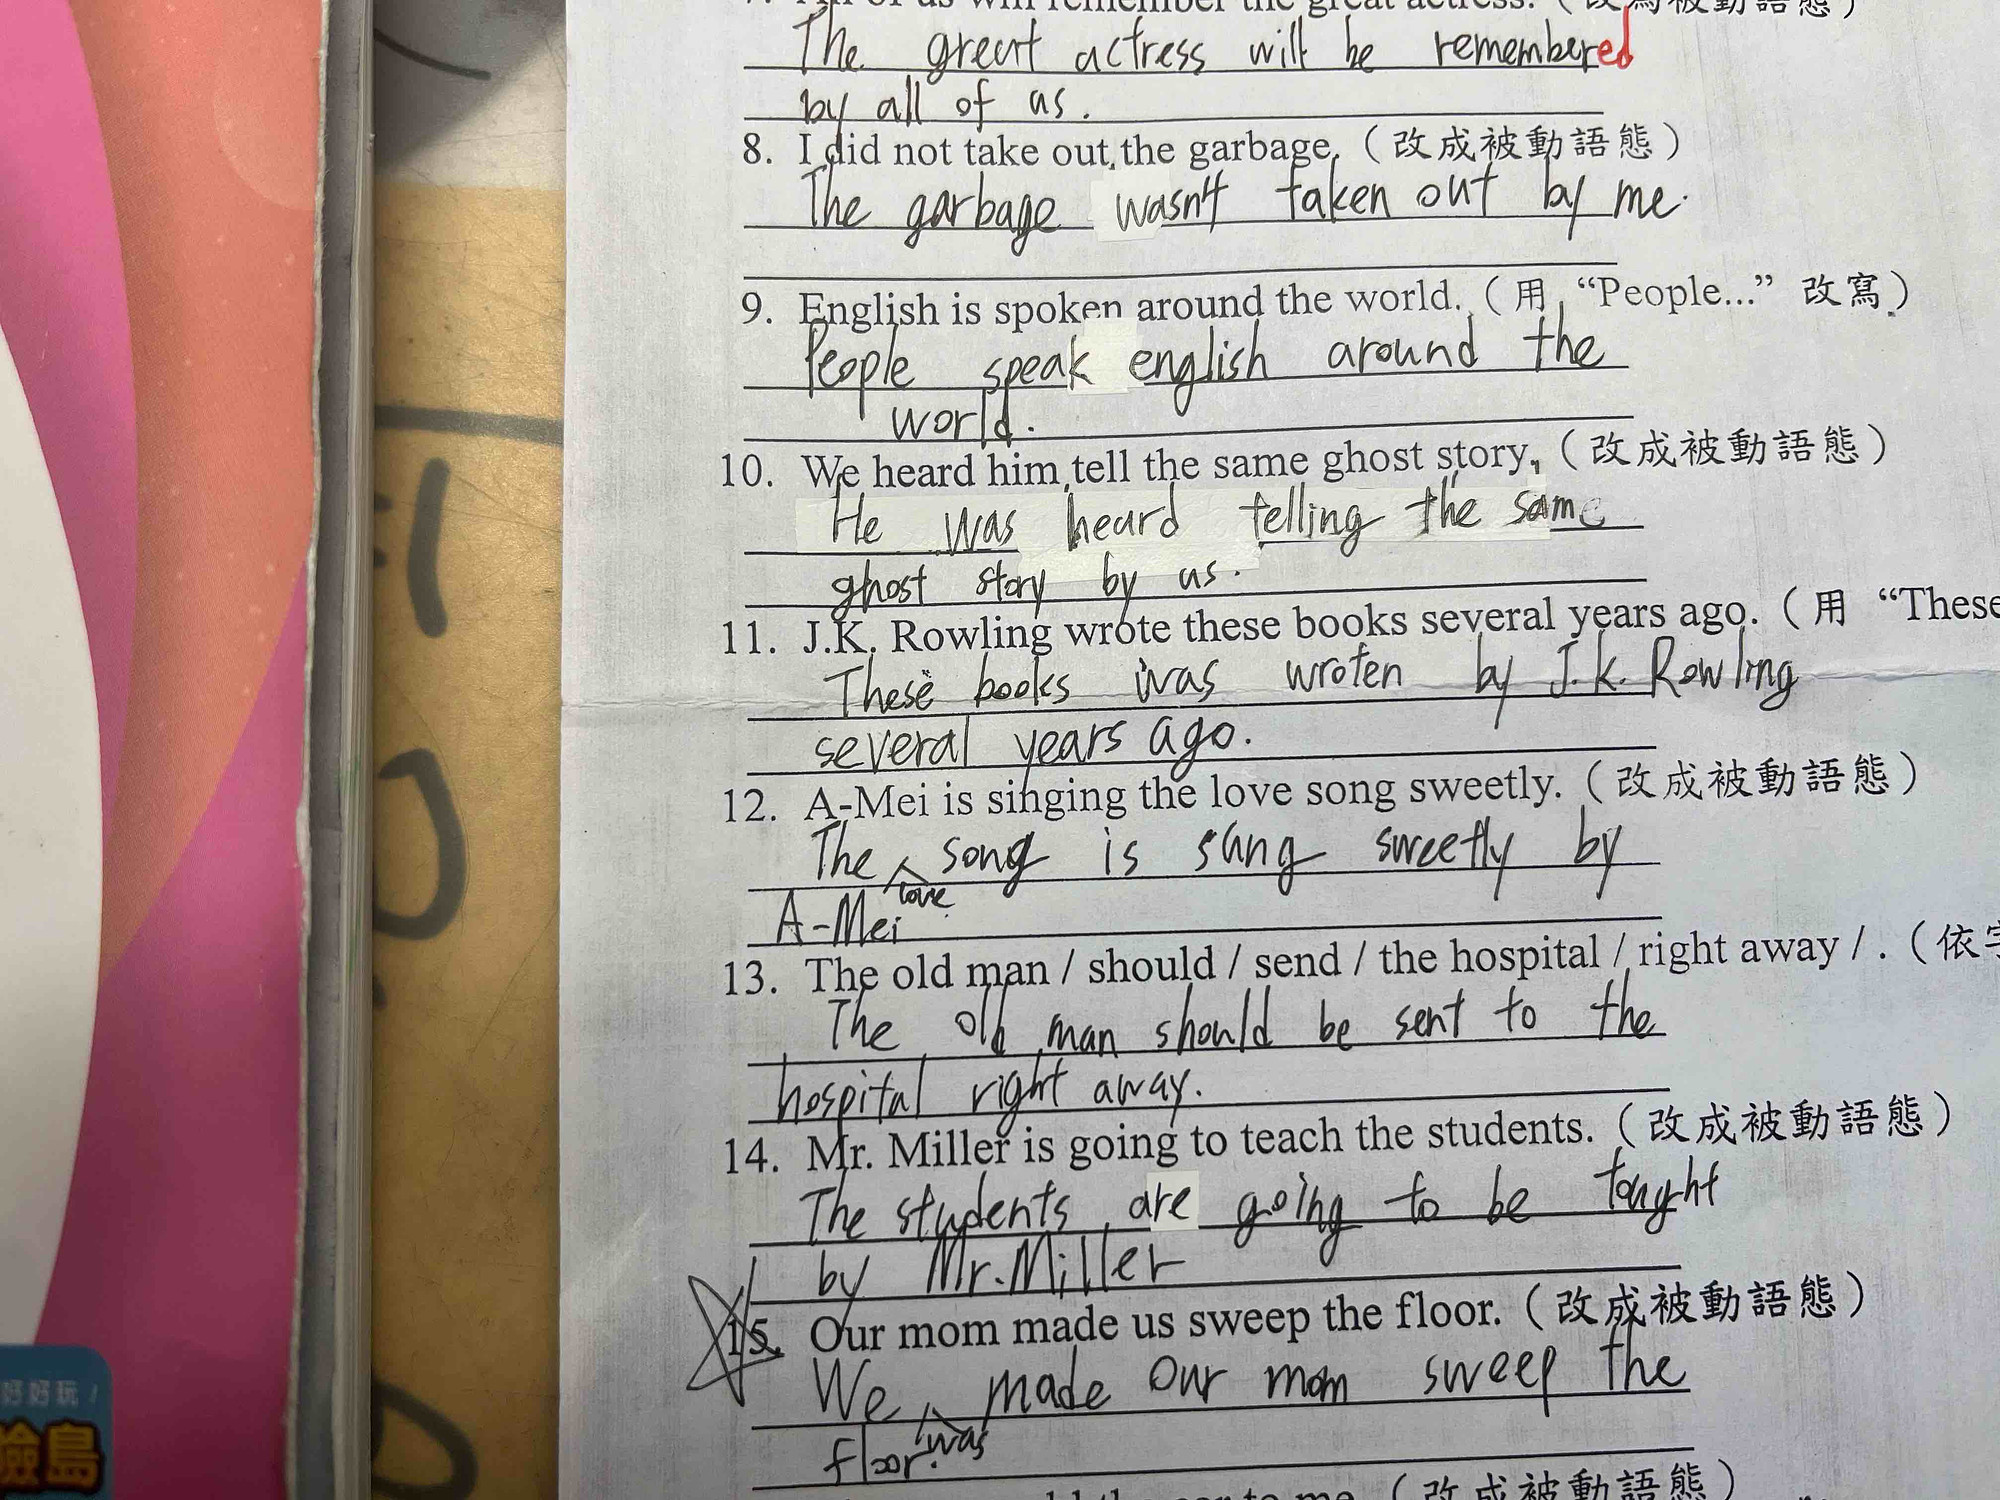 The great actress will be remembered
by all of us.
8. I did not take out the garbage. (改成被動語態)
The garbage wasn't taken out by me.
9. English is spoken around the world. (用 “People...” 改寫)
People speak english around the
world.
10. We heard him tell the same ghost story. (改成被動語態)
He was heard telling the same
ghost story by us.
11. J.K. Rowling wrote these books several years ago. (用 “These
These books was wroten by J.k. Rowling
several years ago.
12. A-Mei is singing the love song sweetly. (改成被動語態)
The love song is sung sweetly by
A-Mei
13. The old man / should / send / the hospital / right away / . (依
The old man should be sent to the
hospital right away.
14. Mr. Miller is going to teach the students. (改成被動語態)
The students are going to be tought
by Mr. Miller
15. Our mom made us sweep the floor. (改成被動語態)
We was made our mom sweep the
floor.
to me. (改成被動語態)
好好玩!
險島